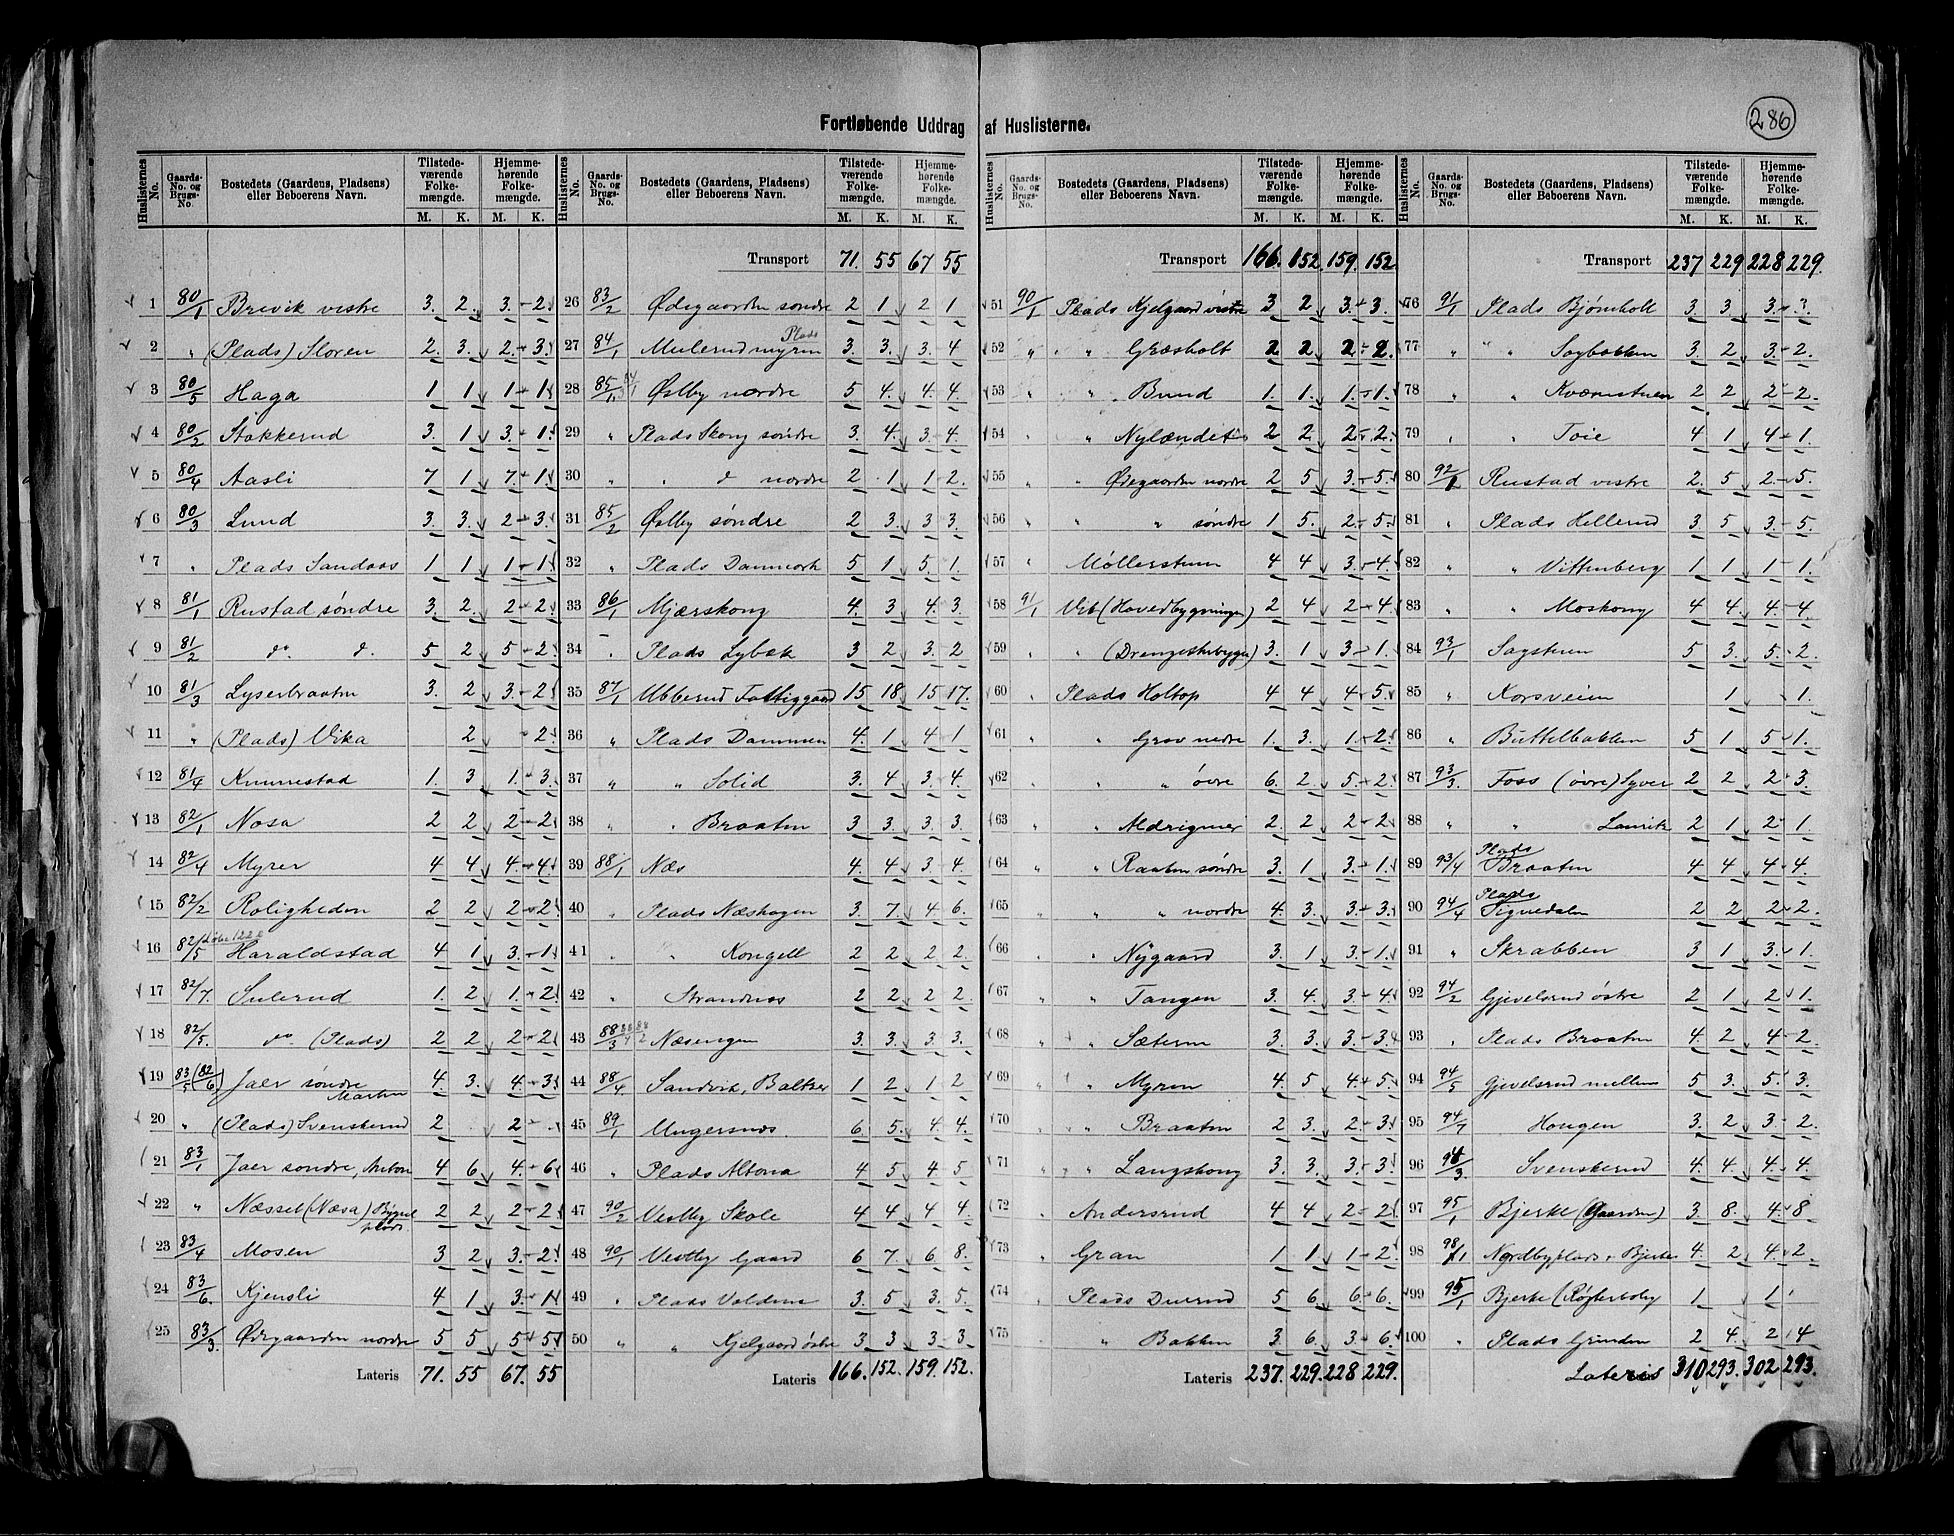 286
Fortløbende Uddrag af Huslisternes.
Huslisternes No. Gaards-No. og Brugs-No. Bostedets (Gaardens, Pladsens) eller Beboerens Navn. Tilstedeværende Folkemængde. M. K. Hjemmehørende Folkemængde. M. K.
1 80/1 Brevik vestre 3. 2. 3. 2.
2 " (Plads) Sloren 2. 3. 2. 3.
3 80/5 Haga 1 1 1 1
4 80/2 Stokkerud 3. 1 3. 1.
5 80/4 Aasli 7 1 7. 1
6 80/3 Lund 3. 3. 2 3.
7 " Plads Sandaas 1 1 1 1
8 81/1 Rustad søndre 3. 2. 2 2.
9 81/2 do. d. 5 2 5 2.
10 81/3 Lyserbraaten 3. 2 3. 2
11 " (Plads) Vika 2 2.
12 81/4 Kinnestad 1. 3 1. 3.
13 82/1 Nasa 2 2 2 2
14 82/4 Myrer 4 4 4. 4.
15 82/2 Roligheden 2 2 2 2.
16 82/5 Haraldstad 4 1 3. 1
17 82/7. Sulerud 1. 2 1. 2.
18 82/5. do. (Plads) 2 2 2 2
19 83/5 (82/6) Jaer søndre Martin 4. 3. 4. 3.
20 " (Plads) Svenskerud 2 2
21 83/1 Jaer søndre, Anton 4 6 4. 6
22 " Næsset (Næsa) Bygselplads 2 2 2 2
23 83/4 Mosen 3 2 3. 2.
24 83/6. Kjensli 4 1 3. 1
25 83/3. Ødegaarden nordre 5 5 5 5
Lateris 71. 55 67. 55
Huslisternes No. Gaards-No. og Brugs-No. Bostedets (Gaardens, Pladsens) eller Beboerens Navn. Tilstedeværende Folkemængde. M. K. Hjemmehørende Folkemængde. M. K.
Transport 71. 55 67 55
26 83/2 Ødegaarden søndre 2 1 2 1
27 84/1 Mulerudmyren Plads 3. 3. 3. 4
28 85/1 Østby nordre 5 4. 4. 4
29 " Plads Skoug søndre 3. 4. 3 4.
30 " " d nordre 2 1 1 2.
31 85/2 Østby søndre 2 3. 3 3.
32 " Plads Danmark 5 1 5 1.
33 86/1 Mjærskoug 4. 3 4. 3.
34 Plads Lybæk 3 2 3. 2
35 87/1 Ubberud Fattiggaard 15 18 15 17.
36 " Plads Dammen 4. 1 4 1
37 " " Solid 3. 4 3. 4.
38 " " Braaten 3 3. 3 3.
39 88/1 Næs 4. 4 3 4.
40 " Plads Næshagen 3. 7. 4 6.
41 " " Kongelf 2 2 2 2.
42 " Strandnæs 2 2 2 2.
43 88/3 Næsengen 3. 3. 3. 3.
44 88/4. Sandvik, Baltzer 1 2 1 2
45 89/1 Ungersnæs. 6 5. 4 4.
46 " Plads Altona 4 5 4 5
47 90/2 Vestby Skole 4 4 4 4.
48 90/1 Vestby Gaard 6 7. 6. 8.
49 " Plads Volden 3. 5 3. 5.
50 " " Kjelgaard østre 3 3 3 3.
Lateris 166. 152. 159. 152.
Huslisternes No. Gaards-No. og Brugs-No. Bostedets (Gaardens, Pladsens) eller Beboerens Navn. Tilstedeværende Folkemængde. M. K. Hjemmehørende Folkemængde. M. K.
Transport 166. 152. 159. 152
51 90/1 Plads Kjelgaard vestre 3 2 3 3.
52 " " Græsholt 2 2. 2 2.
53 " " Bund 1. 1. 1. 1.
54 " Nylændet 2 2. 2 2.
55 " " Ødegaarden nordre 2 5 3. 5.
56 " " " søndre 1 5. 2 5.
57 " Møllerstuen 4 4 3. 4.
58 91/1 Vik (Hovedbygningen) 2 4 2 4.
59 " " (Drengestubygges) 3. 1 3 1.
60 Plads Holtop 4 4 4 5.
61 " " Grav nedre 1. 3. 1 2.
62 " " øvre 6. 2. 5 2.
63 " " 2. 2 2 2
64 " " Raaten søndre 3. 1 3. 1.
65 " " " nordre 4. 3. 3. 3.
66 " " Nygaard 3. 1 3. 1.
67 " " Tangen 3. 4. 3. 4.
68 " " Sæteren 3. 3. 3. 3.
69 " " Myren 4. 5 4. 5.
70 " " Braaten 2 3. 2 3.
71 " " Langskoug 3. 3. 3. 3.
72 " Andersrud 4 4 2 2
73 " Gran 1 1. 1 2.
74 " Plads Duerud 5 6. 6. 6.
75 " Bakken 3 6. 3. 6.
Lateris 237. 229. 228 229.
Huslisternes No. Gaards-No. og Brugs-No. Bostedets (Gaardens, Pladsens) eller Beboerens Navn. Tilstedeværende Folkemængde. M. K. Hjemmehørende Folkemængde. M. K.
Transport 237 229 228 229.
76 91/1 Plads Bjørnholt 3. 3 3. 3.
77 " " Sagbakken 3. 2 3. 2.
78 " " Kværnstuen 2 2 2 2.
79 " " Toie 4 1 4 1.
80 92/2 Rustad vestre 2. 5 2. 5.
81 " Plads Hellerud 3. 5 3. 5.
82 " " Vittenberg 1 1 1 1.
83 " " Moskoug 4 4 4. 4
84 93/1 Sagstuen 5 3. 5. 2.
85 " Korsveien 1 1.
86 " Buttelbakken 5 1 5 1.
87 93/3. Foss (øvre) Syver 2 2 2 3.
88 " " Laurits 2 1 2 1.
89 93/4 Plads Braaten 4 4 4 4.
90 94/4 Plads Signedalen 2 2 2 2.
91 " Skrabben 3 1 3. 1.
92 94/2 Gjevelsrud østre 2 1 2 1.
93 " Plads Braaten 4. 2 4. 2.
94 94/5 Gjevelsrud mellem 5 3. 5. 3.
95 94/7 Hougen 3. 2 3. 2.
96 94/3 Svenskerud 4. 4. 4. 4.
97 95/1 Bjerke (Gaarden) 3. 8. 4. 8.
98 98/1 Nordbyplads, Bjerke 4. 2 4. 2.
99 95/1 Bjerke (Røgterbolig 1 1
100 " Plads Grinden 2 4. 2 4
Lateris 310 293. 302 293.